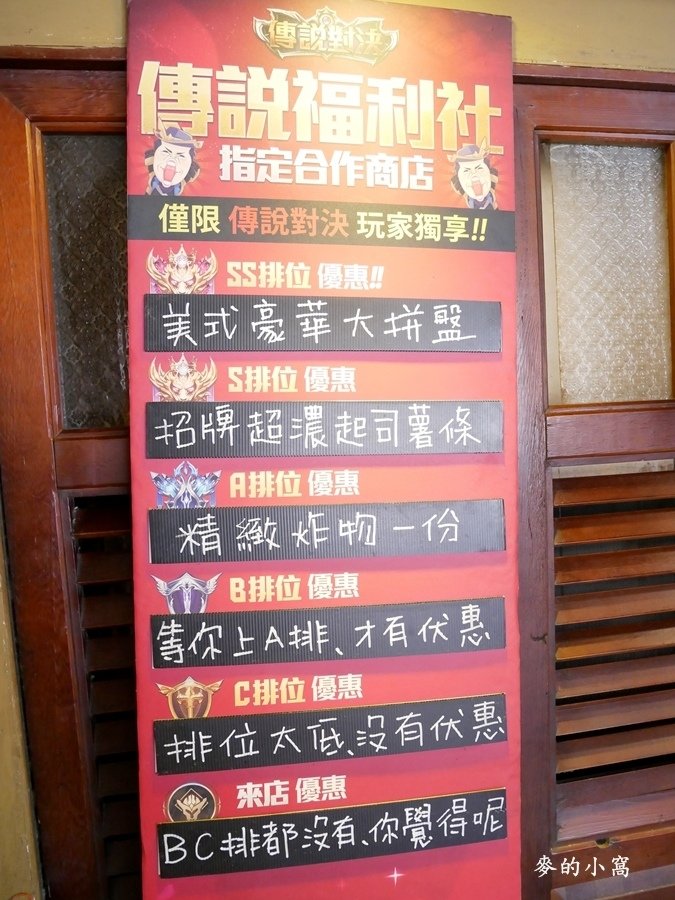 傳說對決
傳說福利社
指定合作商店
僅限 傳說對決 玩家獨享!!
SS排位 優惠!!
美式豪華大拼盤
S排位 優惠
招牌超濃起司薯條
A排位 優惠
精緻炸物一份
B排位 優惠
等你上A排、才有伏惠
C排位 優惠
排位太低、沒有伏惠
來店 優惠
BC排都沒有、你覺得呢
麥的小窩